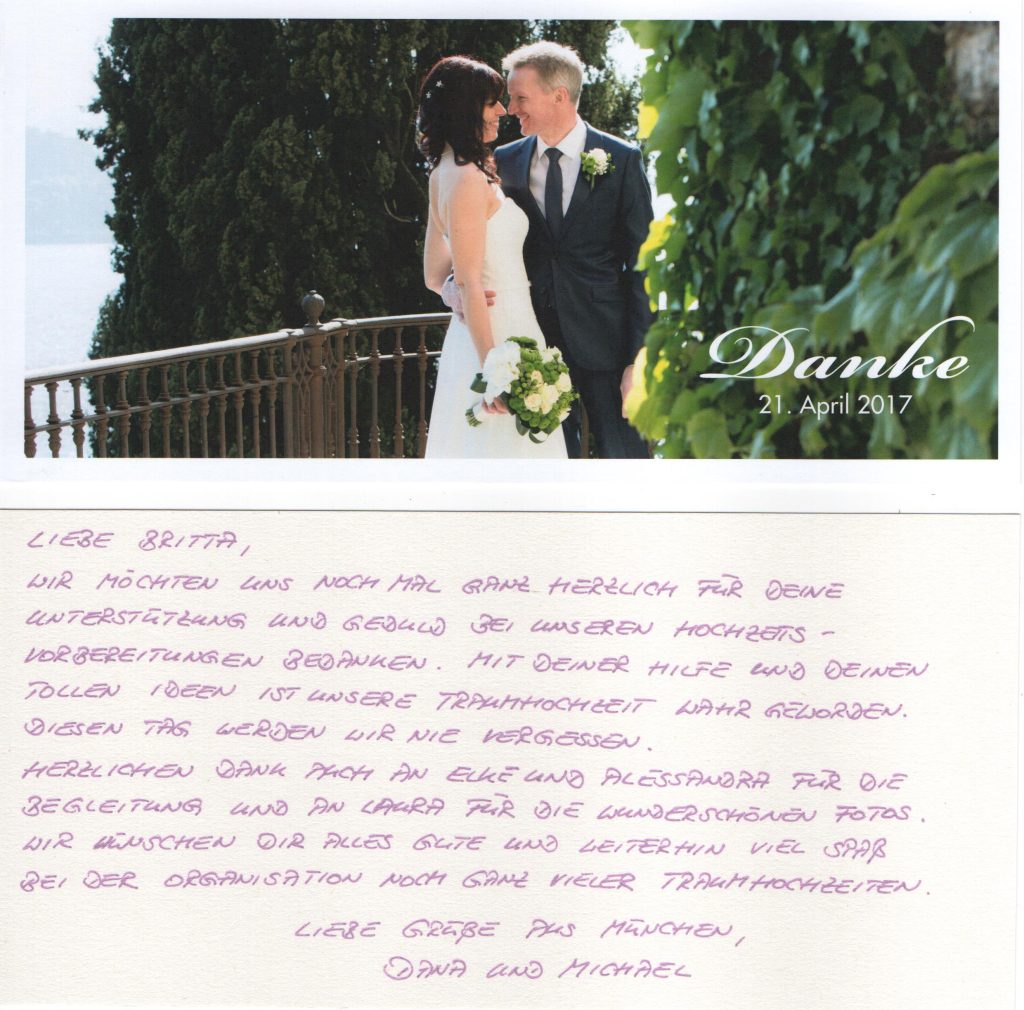 Danke
21. April 2017
LIEBE BRITTA,
WIR MÖCHTEN UNS NOCH MAL GANZ HERZLICH FÜR DEINE
UNTERSTÜTZUNG UND GEDULD BEI UNSEREN HOCHZETS-
VORBEREITUNGEN BEDANKEN. MIT DEINER HILFE UND DEINEN
TOLLEN IDEEN IST UNSERE TRAUMHOCHZEIT WAHR GEWORDEN.
DIESEN TAG WERDEN WIR NIE VERGESSEN.
HERZLICHEN DANK AUCH AN ELKE UND ALESSANDRA FÜR DIE
BEGLEITUNG UND AN LAURA FÜR DIE WUNDERSCHÖNEN FOTOS.
WIR WÜNSCHEN DIR ALLES GUTE UND WEITERHIN VIEL SPAß
BEI DER ORGANISATION NOCH GANZ VIELER TRAUMHOCHZEITEN.
LIEBE GRÜßE AUS MÜNCHEN,
DANA UND MICHAEL